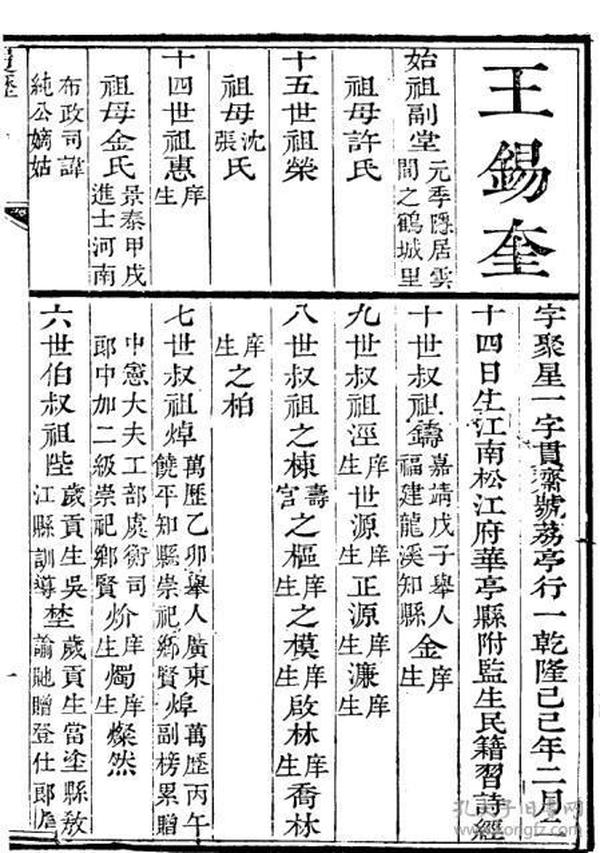 王錫奎
始祖副堂元季隱居雲間之鶴城里
祖母許氏
十五世祖榮
祖母沈張氏
十四世祖惠庠生
祖母金氏景泰甲戌進士河南
布政司諱純公嫡姑
字聚星一字貫齋號荔亭行一乾隆己巳年二月二
十四日生江南松江府華亭縣附監生民籍習詩經
十世叔祖鑄嘉靖戊子舉人福建龍溪知縣金庠生
九世叔祖涇庠生世源庠生正源庠生濂庠生
八世叔祖之棟壽官之樞庠生之模庠生啟林庠生喬林
庠生之柏
七世叔祖焯萬歷乙卯舉人廣東饒平知縣崇祀鄉賢萬歷丙午副榜累贈
中憲大夫工部虞衡司郎中加二級崇祀鄉賢炌庠生燭庠生燦然
六世伯叔祖陛歲貢生吳江縣訓導埜歲貢生當塗縣教諭貤贈登仕郎詹
一